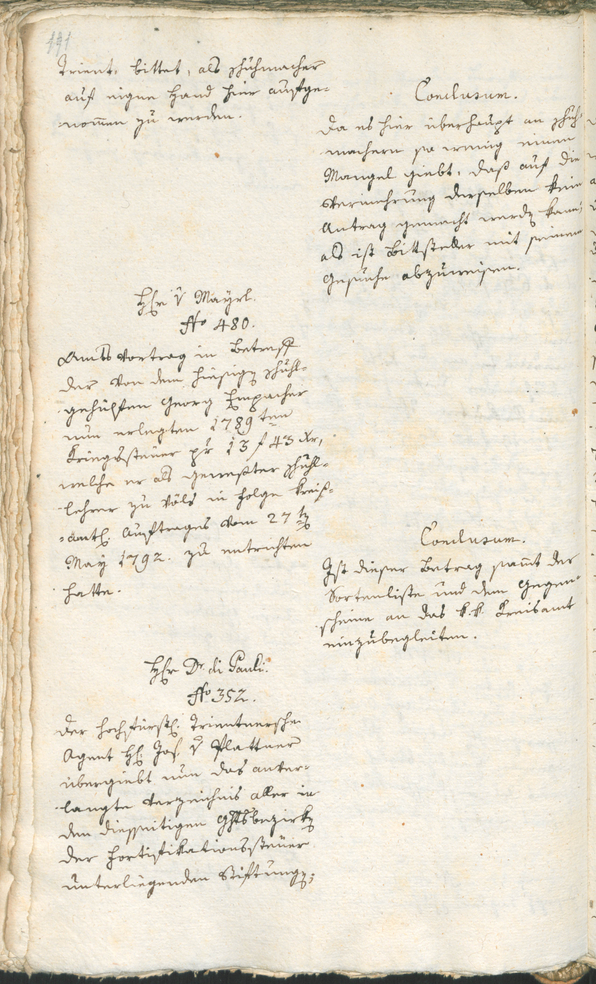 191
Trient, bittet, als Schuhmacher
auf eigne Hand hier aufge-
nommen zu werden.
Conclusum.
Da es hier überhaupt an Schuh-
machern so wenig einen
Mangel giebt, daß auf die
Vermehrung derselben kein
Antrag gemacht werden kann,
als ist Bittsteller mit seinem
Gesuche abzuweisen.
Hr v Mayrl.
No 480.
Amtsvortrag in Betreff
der von dem hiesigen Schul-
gehülfen Georg Empacher
nun erlegten 1789ten
Kriegssteuer pr 13 f 43 kr,
welche er als gewester Schul-
lehrer zu Völs in Folge Kreis-
amtl. Auftrages vom 27ten
May 1792. zu entrichten
hatte.
Conclusum.
Ist dieser Betrag samt der
Sortenliste und dem Gegen-
scheine an das k.k. Kreisamt
einzubegleiten.
Hr Dr. di Pauli.
No 352.
Der hochfürstl. Trientnersche
Agent H. Jos. v Plattner
übergiebt nun das anver-
langte Verzeichnis aller in
dem diesseitigen Ghtsbezirke
der Fortifikationssteuer
unterliegenden Stiftungs-